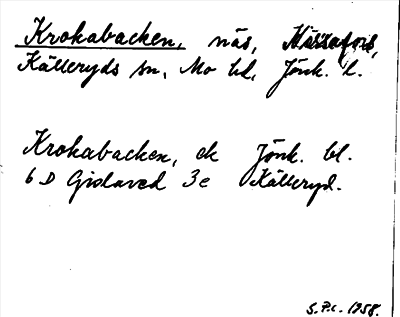 Krokabacken, näs,
Källeryds sn, Mo hd, Jönk. l.
Krokabacken, ek Jönk. bl.
6 D Gislaved 3 e Källeryd.
S.P.c. 1958.